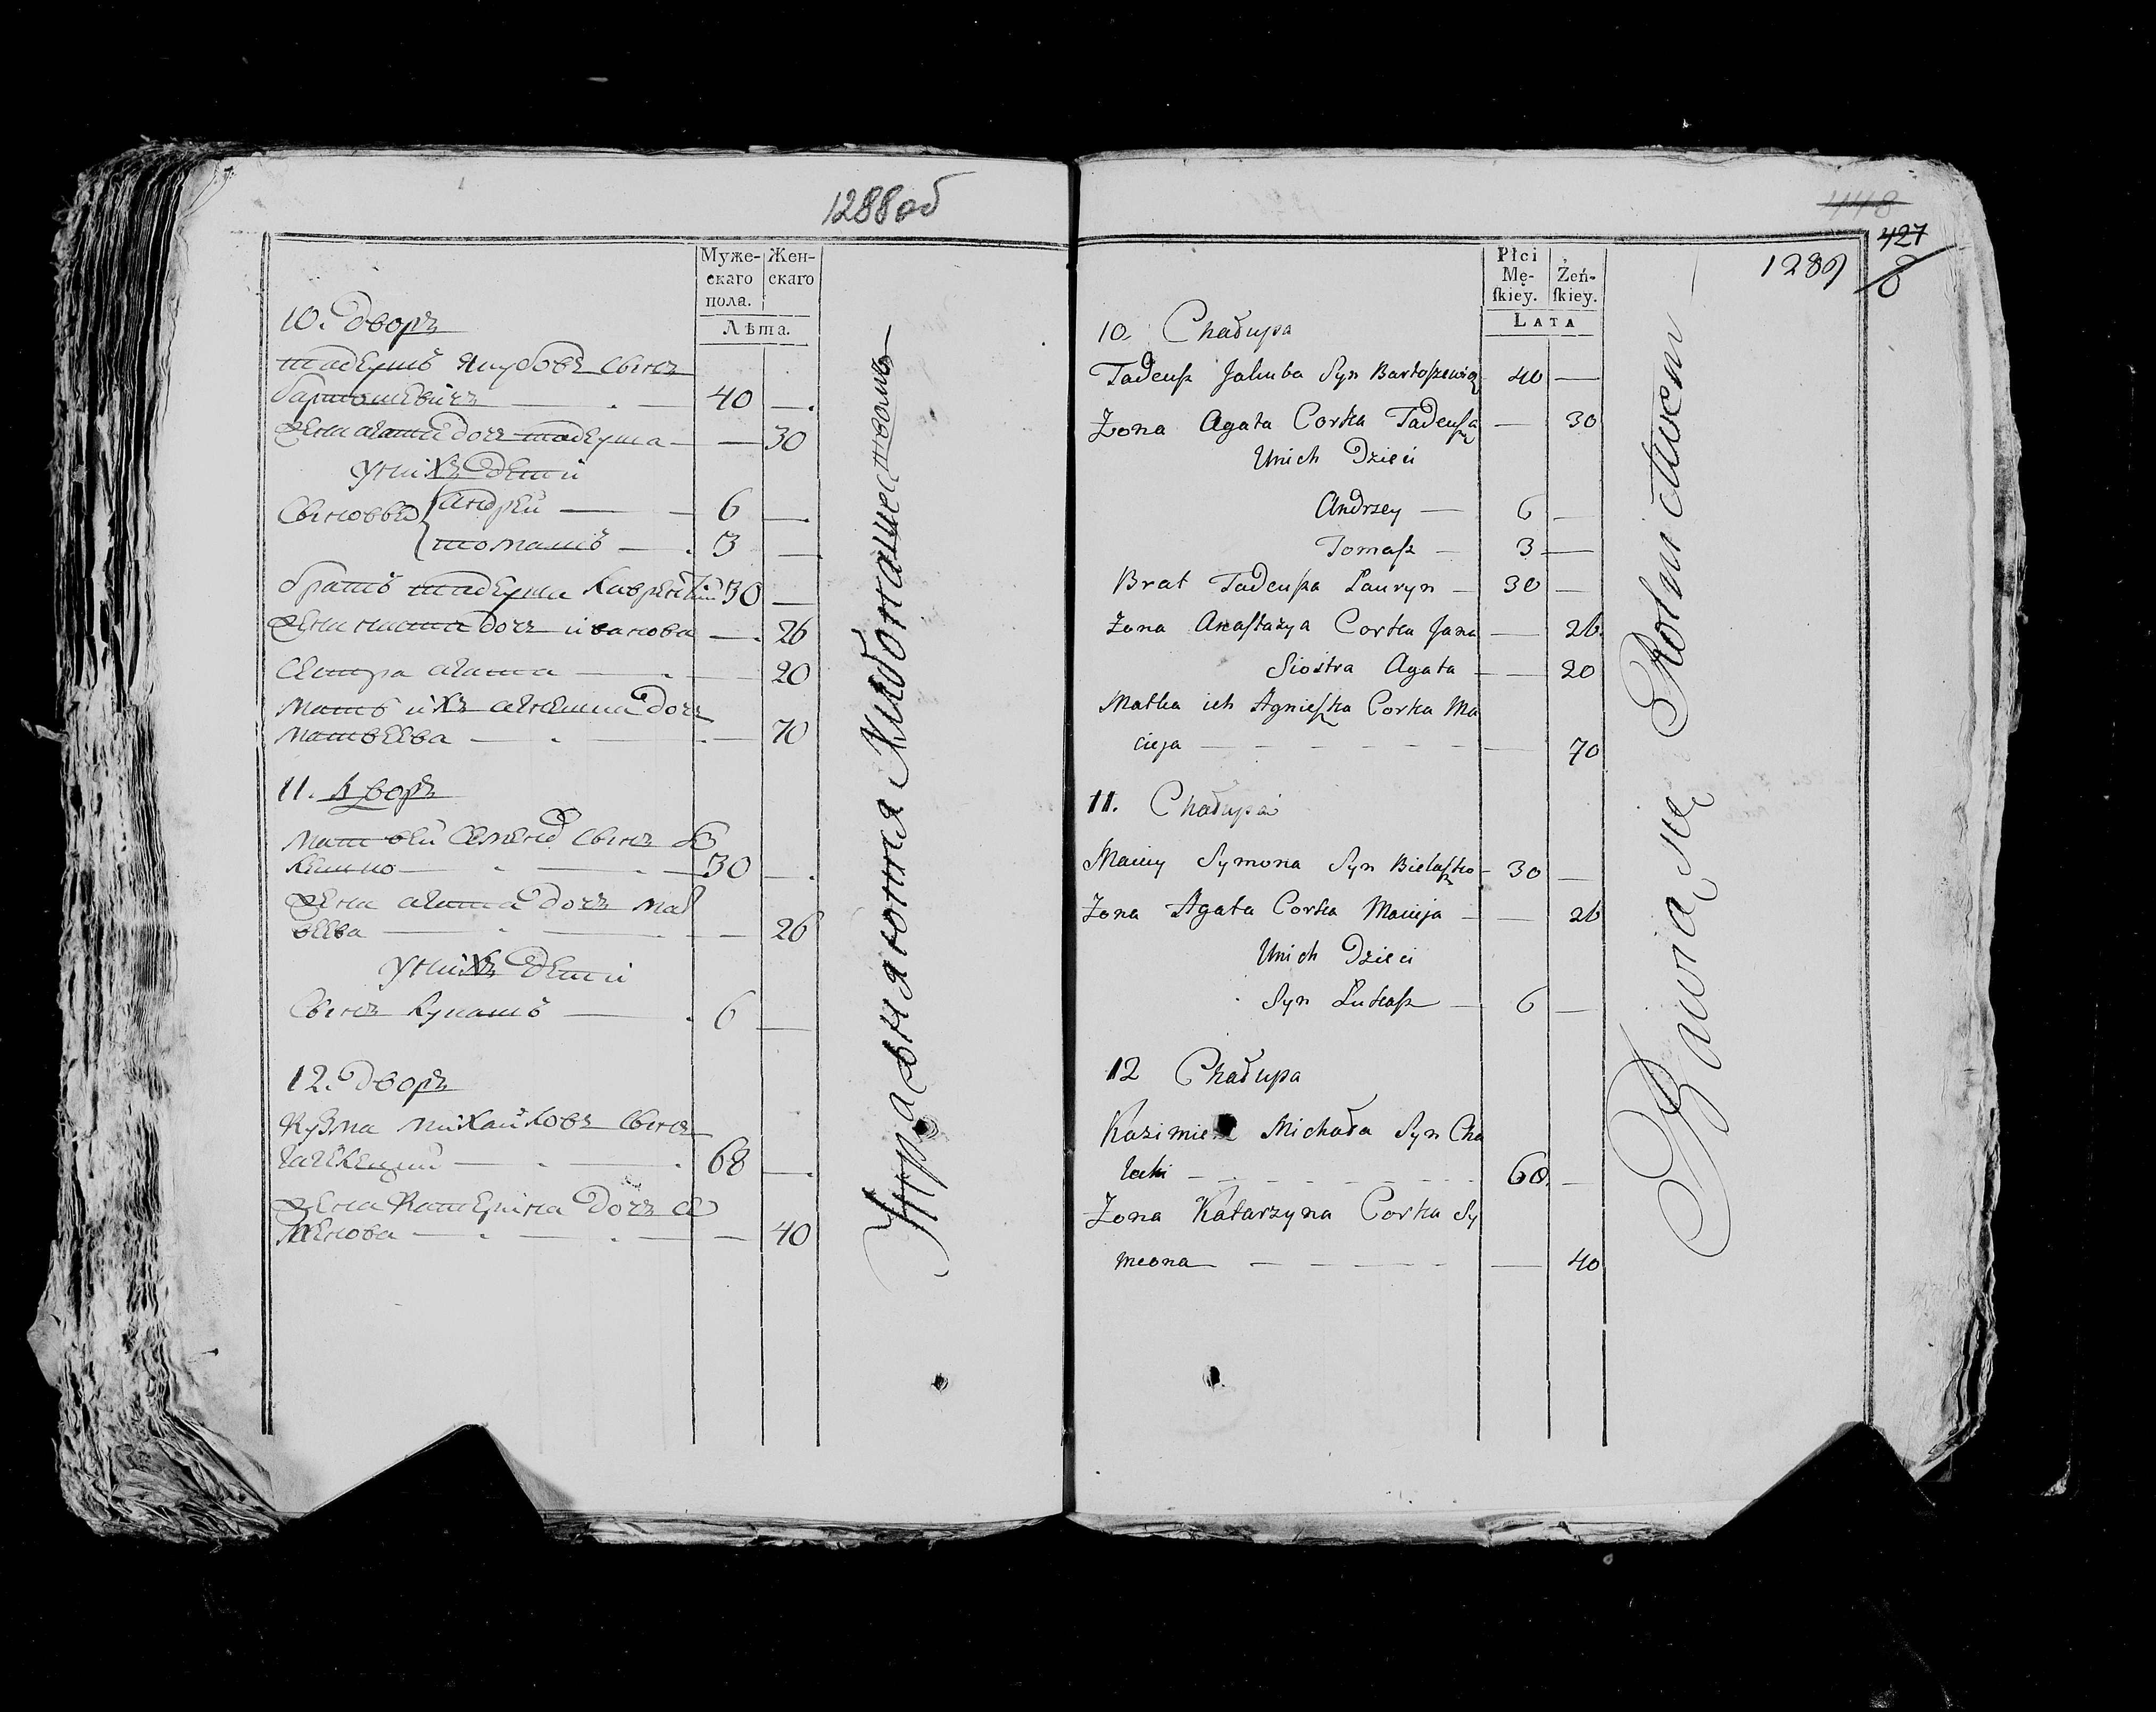 1288об
Муже-
скаго
пола.
Жен-
скаго
Лѣта.
10. Дворъ
тадеушъ якубовъ сынъ
бартошевичъ — 40 —
жена агата дочь тадеуша — — 30
у них дети
Сыновья андрей — 6 —
томашъ — 3 —
братъ тадеуша 30 —
жена наста дочь иванова — 26
сестра агата — — 20
Мать ихъ агнешка дочь
матвеева — — 70
11. Дворъ
матвей семенов сынъ бе
30 —
жена агата дочь мат
веева — — 26
у них дети
Сынъ лукашъ — 6 —
12. Дворъ
кузма михайловъ сынъ
68 —
жена катерина дочь се
менова — — 40
Упражняются хлебопашеством
448
427
1289
8
Płci
Mę-
ſkiey.
Żeń-
ſkiey.
LATA
10. Chałupa
Tadeusz Jakuba Syn Bartoszewicz 40 —
Zona Agata Corka Tadeusza — 30
Unich Dzieci
Andrzey — 6 —
Tomasz — 3 —
Brat Tadeusza Lauryn — 30 —
Zona Anastazya Corka Jana — 26.
Siostra Agata — — 20
Matka ich Agnieszka Corka Ma
cieja — — 70
11. Chałupa
Maciey Symona Syn Bielaszko 30 —
Zona Agata Corka Macieja — — 26
Unich Dzieci
Syn Lukasz — 6 —
12 Chałupa
Kazimierz Michała Syn Cha
lecki — 68. —
Zona Katarzyna Corka Sy
meona — — 40
Bawią się Rolnictwem